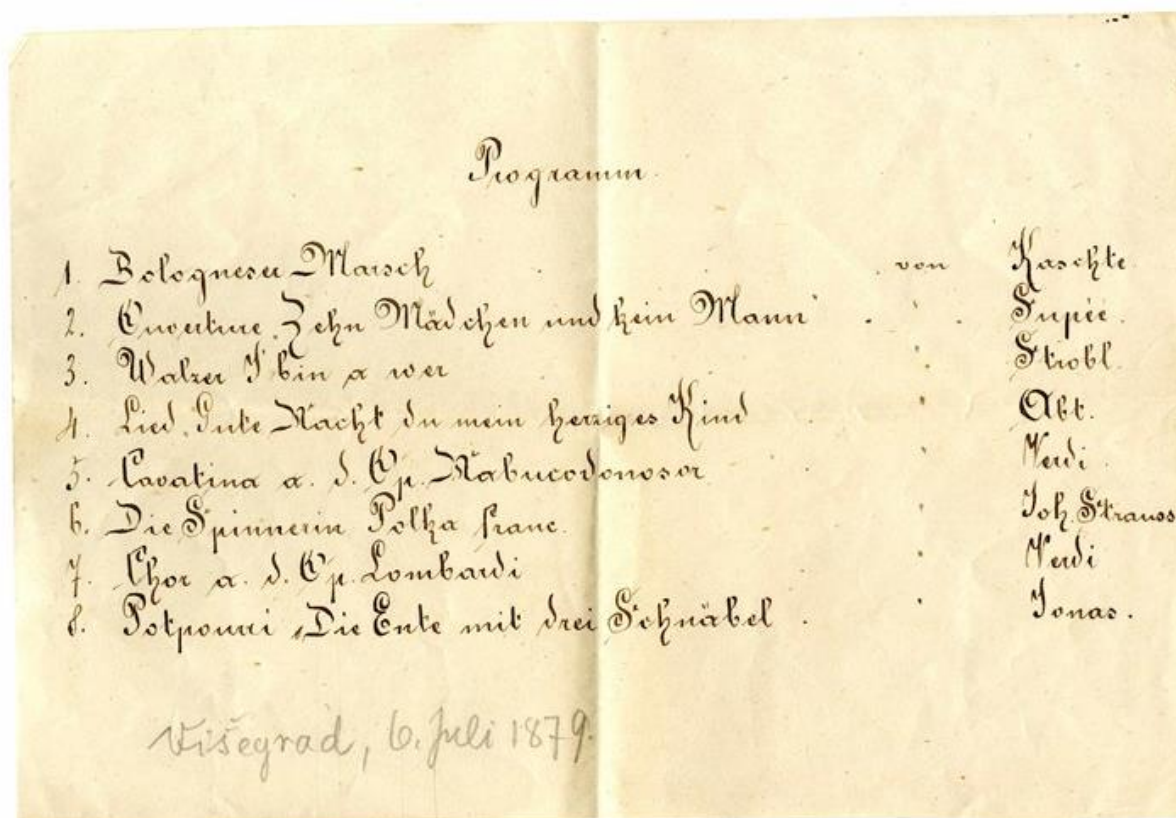 Programm.
1. Bologneser-Marsch . von Kaschte.
2. Ouverture, Zehn Mädchen und kein Mann" . " . Supeé.
3. Walzer I bin a wer " Strobl.
4. Lied, Gute Nacht du mein herziges Kind . " Abt.
5. Cavatina a. d. Op. Nabucodonosor . " Verdi.
6. Die Spinnerin Polka franc. " Joh. Strauss
7. Chor a. d. Op. Lombardi " Verdi
8. Potpourri „Die Ente mit drei Schnäbel . " Jonas.
Višegrad, 6. Juli 1879.